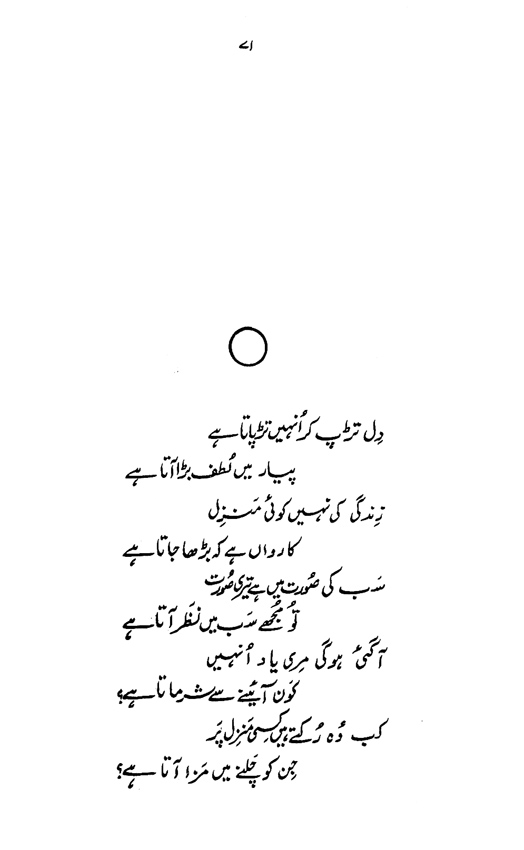 ۷۱
دِل تڑپ کر اُنہیں تڑپاتا ہے
پیار میں لُطف بڑا آتا ہے
زِندگی کی نہیں کوئی مَنزِل
کارواں ہے کہ بڑھا جاتا ہے
سَب کی صُورت میں ہے تیری صُورت
تُو مُجھے سَب میں نَظَر آتا ہے
آ گئی ہوگی مِری یاد اُنہیں
کَون آئینے سے شرماتا ہے؟
کب وُہ رُکتے ہیں کِسی مَنزِل پَر
جِن کو چَلنے میں مَزا آتا ہے؟